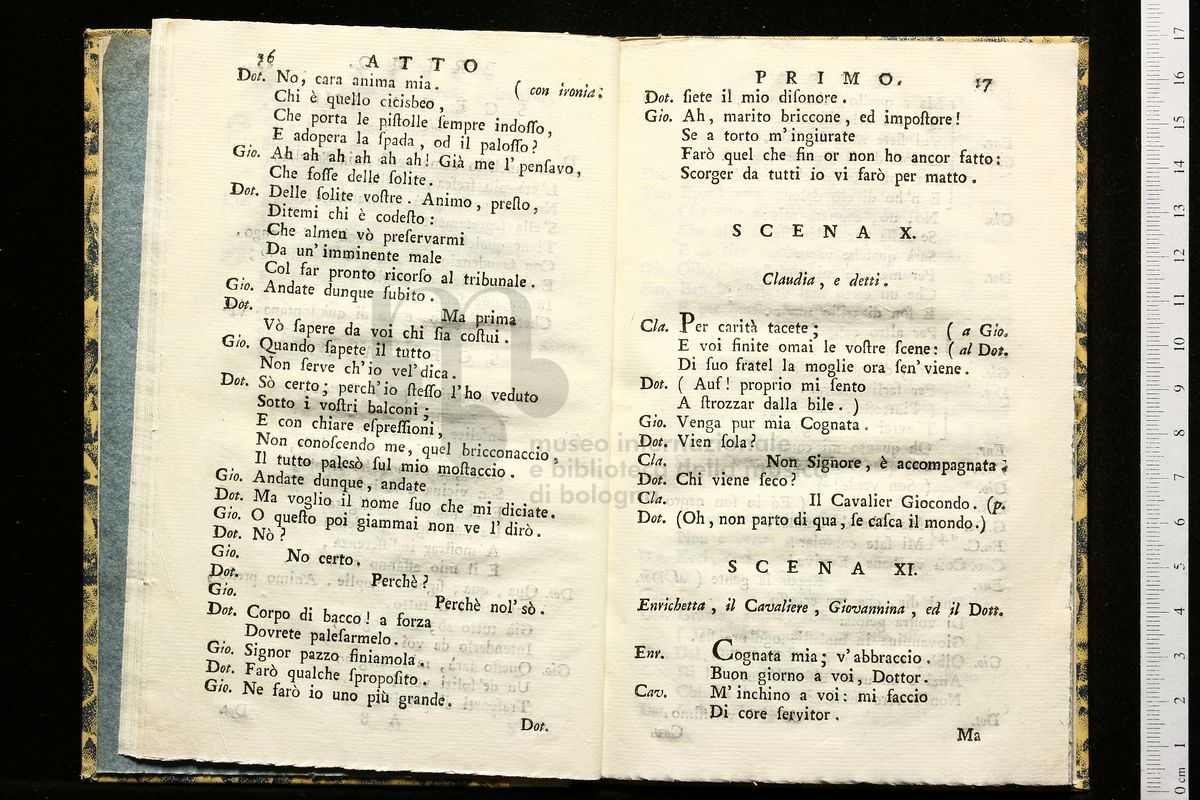 16 ATTO
Dot. No, cara anima mia. ( con ironia:
Chi è quello cicisbeo,
Che porta le piſtolle ſempre indoſſo,
E adopera la ſpada, od il paloſſo?
Gio. Ah ah ah ah ah ah! Già me l'penſavo,
Che foſſe delle ſolite.
Dot. Delle ſolite voſtre. Animo, preſto,
Ditemi chi è codeſto:
Che almen vò preſervarmi
Da un'imminente male
Col far pronto ricorſo al tribunale.
Gio. Andate dunque ſubito.
Dot. Ma prima
Vò ſapere da voi chi ſia coſtui.
Gio. Quando ſapete il tutto
Non ſerve ch'io vel'dica.
Dot. Sò certo; perch'io ſteſſo l'ho veduto
Sotto i voſtri balconi;
E con chiare eſpreſſioni,
Non conoſcendo me, quel bricconaccio,
Il tutto palesò ſul mio moſtaccio.
Gio. Andate dunque, andate
Dot. Ma voglio il nome ſuo che mi diciate.
Gio. O queſto poi giammai non ve l'dirò.
Dot. Nò?
Gio. No certo.
Dot. Perchè?
Gio. Perchè nol'sò.
Dot. Corpo di bacco! a forza
Dovrete paleſarmelo.
Gio. Signor pazzo finiamola.
Dot. Farò qualche ſpropoſito.
Gio. Ne farò io uno più grande.
Dot.
PRIMO. 17
Dot. ſiete il mio diſonore.
Gio. Ah, marito briccone, ed impoſtore!
Se a torto m'ingiurate
Farò quel che fin or non ho ancor fatto:
Scorger da tutti io vi farò per matto.
SCENA X.
Claudia, e detti.
Cla. Per carità tacete; ( a Gio.
E voi finite omai le voſtre ſcene: ( al Dot.
Di ſuo fratel la moglie ora ſen'viene.
Dot. ( Auf! proprio mi ſento
A ſtrozzar dalla bile. )
Gio. Venga pur mia Cognata.
Dot. Vien ſola?
Cla. Non Signore, è accompagnata;
Dot. Chi viene ſeco?
Cla. Il Cavalier Giocondo. (p.
Dot. (Oh, non parto di qua, ſe caſca il mondo.)
SCENA XI.
Enrichetta, il Cavaliere, Giovannina, ed il Dott.
Enr. Cognata mia; v'abbraccio.
Buon giorno a voi, Dottor.
Cav. M'inchino a voi: mi faccio
Di core ſervitor.
Ma
museo internazionale
e biblioteca della musica
di bologna